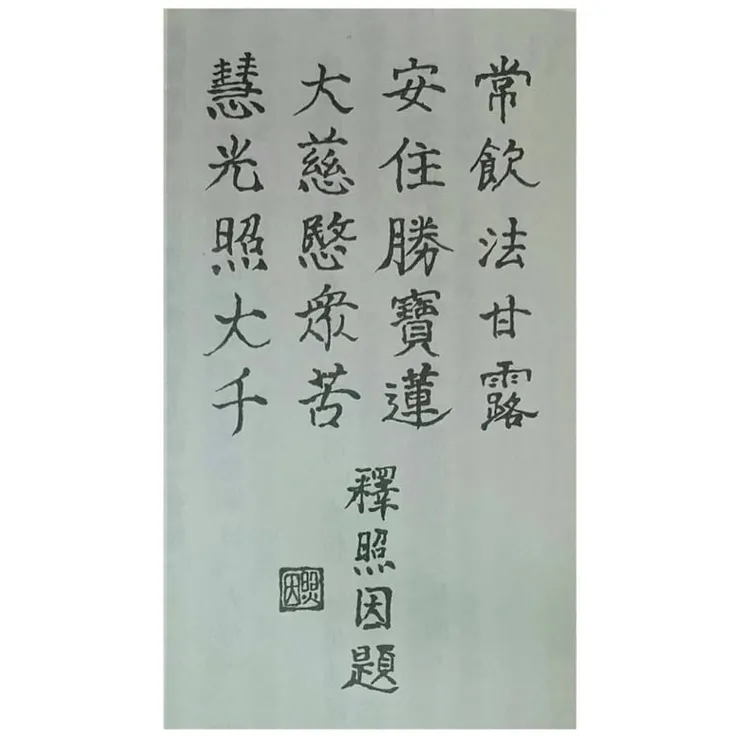 常飲法甘露
安住勝寶蓮
大慈愍眾苦
慧光照大千
釋照因題
照因